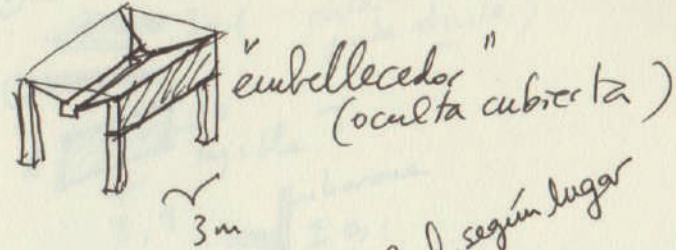 "embellecedor"
(oculta cubierta)
3m
según lugar